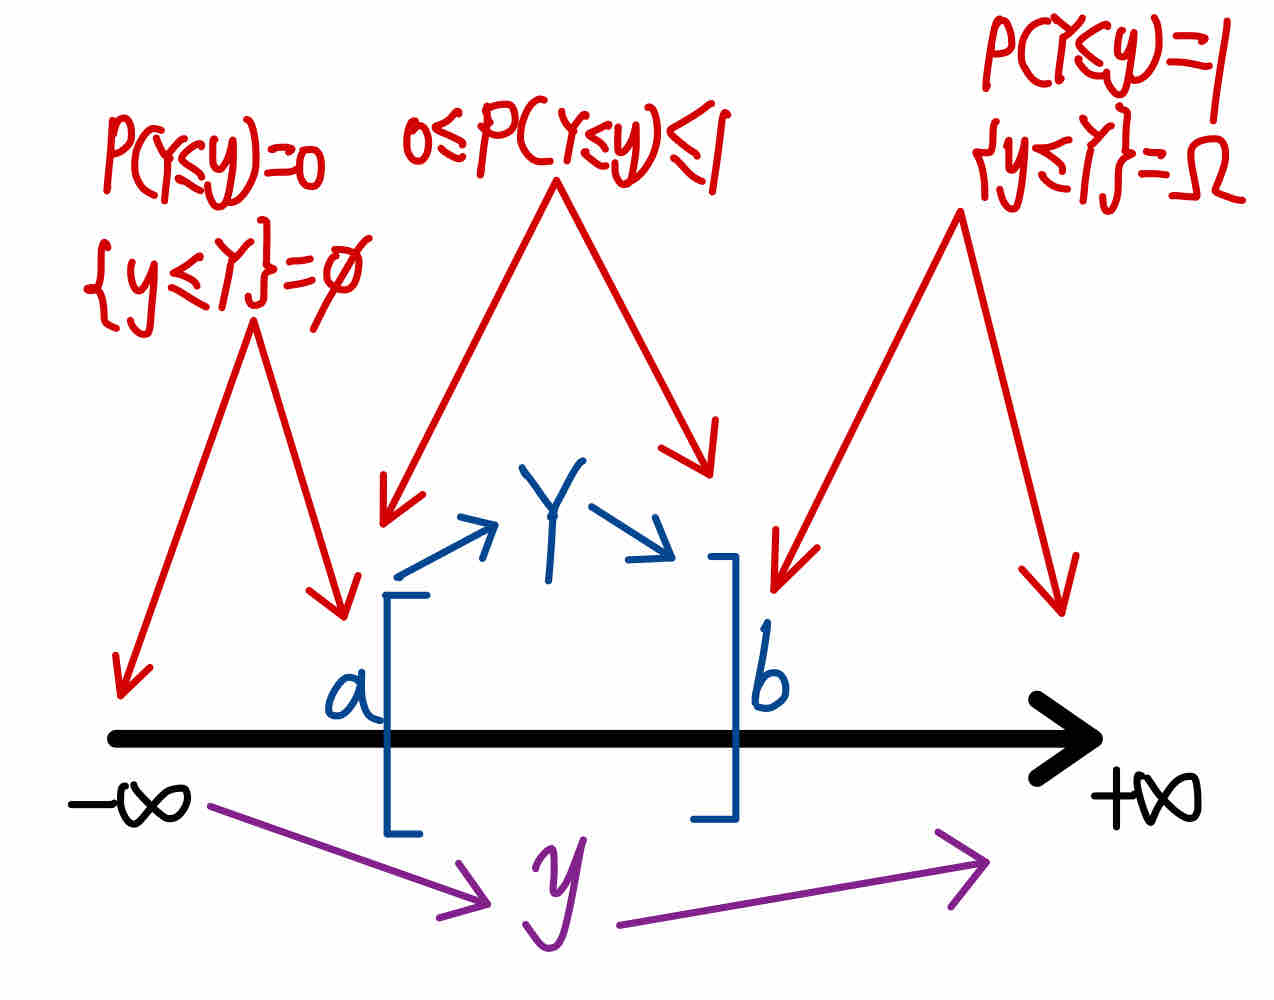 P(Y≤y)=0
{y≤Y}=∅
0≤P(Y≤y)≤1
P(Y≤y)=1
{y≤Y}=Ω
Y
a
b
-∞
+∞
y